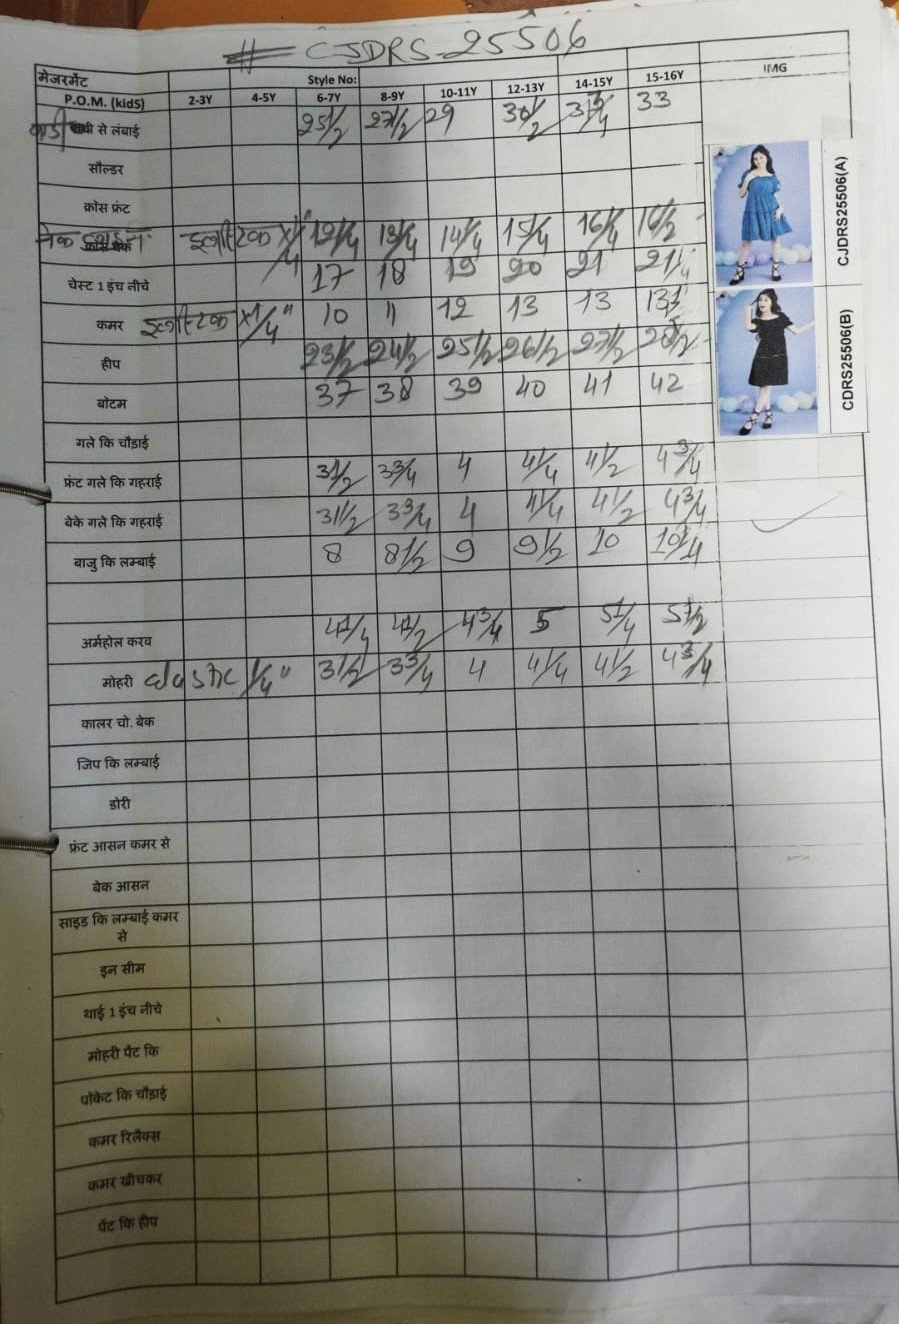 # CJDRS-25506
मेजरमेंट Style No: IMG
P.O.M. (kidS) 2-3Y 4-5Y 6-7Y 8-9Y 10-11Y 12-13Y 14-15Y 15-16Y
से लंबाई 25 1/2 27 1/2 29 30 1/2 31 3/4 33
सौल्डर
क्रॉस फ्रंट
नेक इलास्टिक x 1/4" 12 1/4 13 1/4 14 1/4 15 1/4 16 1/4
चेस्ट 1 इंच नीचे 17 18 19 20 21 21
कमर इलास्टिक x 1/4" 10 11 12 13 13
हीप 23 1/2 24 1/2 25 1/2 26 1/2 27 1/2 28 1/2
बॉटम 37 38 39 40 41 42
गले कि चौड़ाई
फ्रंट गले कि गहराई 3 1/2 3 3/4 4 4 1/4 4 1/2 4 3/4
बेके गले कि गहराई 3 1/2 3 3/4 4 4 1/4 4 1/2 4 3/4
बाजु कि लम्बाई 8 8 1/2 9 9 1/2 10 10 1/4
अर्महोल करय 4 1/4 4 1/2 4 3/4 5 5 1/4 5 1/2
मोहरी elastic 1/4" 3 1/2 3 3/4 4 4 1/4 4 1/2 4 3/4
कालर चो. बेक
जिप कि लम्बाई
डोरी
फ्रंट आसन कमर से
बेक आसन
साइड कि लम्बाई कमर
से
इन सीम
थाई 1 इंच नीचे
मोहरी पेंट कि
पॉकेट कि चौड़ाई
कमर रिलैक्स
कमर खीचकर
पेंट कि हीप
CJDRS25506(A)
CDRS25506(B)